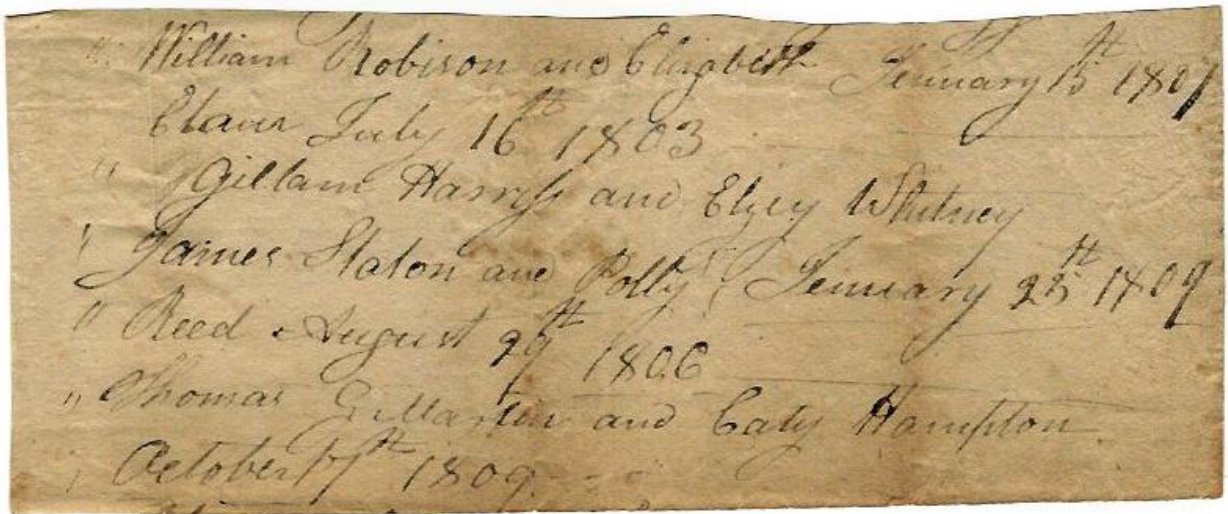 " William Robison and Elizabeth Jenuary 15th 1807
Elam July 16th 1803
" Gillam Harris and Elzey Whitney
" James Slaton and Polly Jenuary 25th 1809
" Reed August 29th 1806
" Thomas G. Martin and Caty Hampton
" October 17th 1809